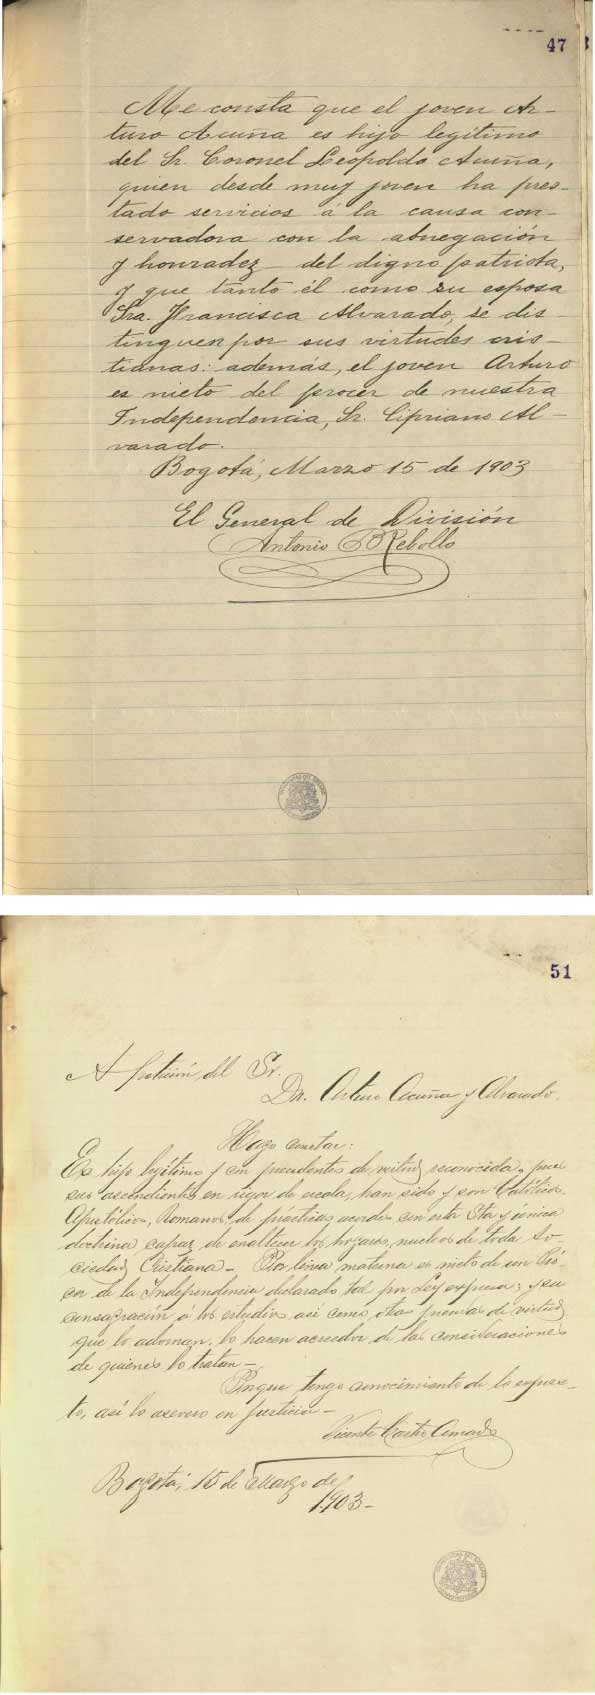 47
Me consta que el joven Ar-
turo Acuña es hijo legitimo
del Sr. Coronel Leopoldo Acuña,
quien desde muy joven ha pres-
tado servicios á la causa con-
servadora con la abnegación
y honradez del digno patriota,
y que tanto él como su esposa
Sra. Francisca Alvarado, se dis-
tinguen por sus virtudes cris-
tianas: además, el joven Arturo
es nieto del procer de nuestra
Independencia, Sr. Cipriano Al-
varado.
Bogotá, Marzo 15 de 1903
El General de División
Antonio B Rebollo
51
A petición del Sr.
Dn. Arturo Acuña y Alvarado.
Hago constar:
Es hijo legítimo y con precedentes de virtud reconocida, pues
sus ascendientes en rigor de escala, han sido y son Católicos,
Apostólicos, Romanos, de prácticas acordes con esta Sta y única
doctrina capaz de enaltecer los hogares, nucleos de toda So-
ciedad Cristiana - Por línea materna es nieto de un Pró-
cer de la Independencia declarado tal por Ley expresa; y su
consagración á los estudios así como otras prendas de virtud
que lo adornan, lo hacen acreedor á las consideraciones
de quienes lo tratan -
Porque tengo conocimiento de lo expues-
to, así lo asevero en justicia -
Vicente Castro
Bogotá, 15 de Marzo de
1903 -